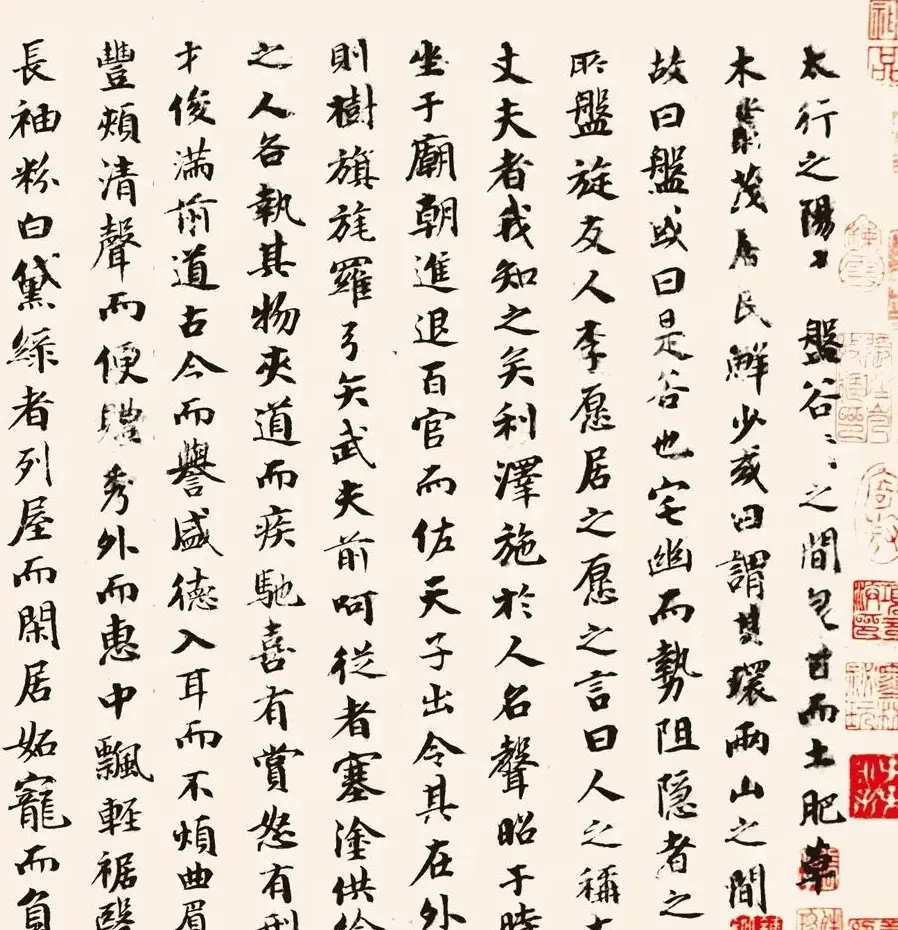 太行之陽々盤谷々之間泉甘而土肥草
木藂茂居民鮮少或曰謂其環兩山之間
故曰盤或曰是谷也宅幽而勢阻隠者之
所盤旋友人李愿居之愿之言曰人之稱
丈夫者我知之矣利澤施於人名聲昭于時
坐于廟朝進退百官而佐天子出令其在外
則樹旗旄羅弓矢武夫前呵従者塞塗供給
之人各執其物夾道而疾馳喜有賞怒有刑
才俊滿前道古今而譽盛徳入耳而不煩曲眉
豐頰清聲而便體秀外而惠中飄軽裾翳
長袖粉白黛綠者列屋而閑居妬寵而負